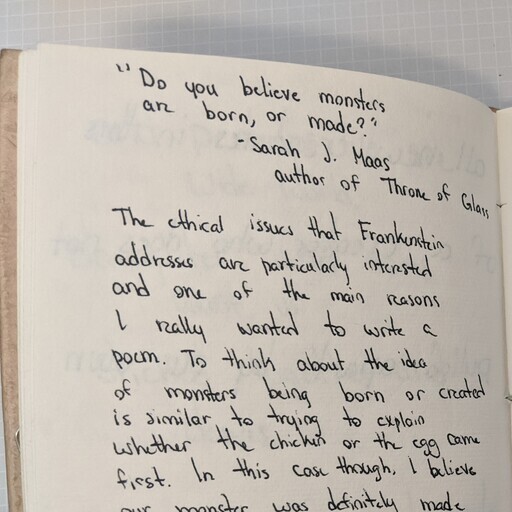 "Do you believe monsters
are born, or made?"
-Sarah J. Maas
author of Throne of Glass
The ethical issues that Frankenstein
addresses are particularly interested
and one of the main reasons
I really wanted to write a
poem. To think about the idea
of monsters being born or created
is similar to trying to explain
whether the chicken or the egg came
first. In this case though, I believe
our monster was definitely made